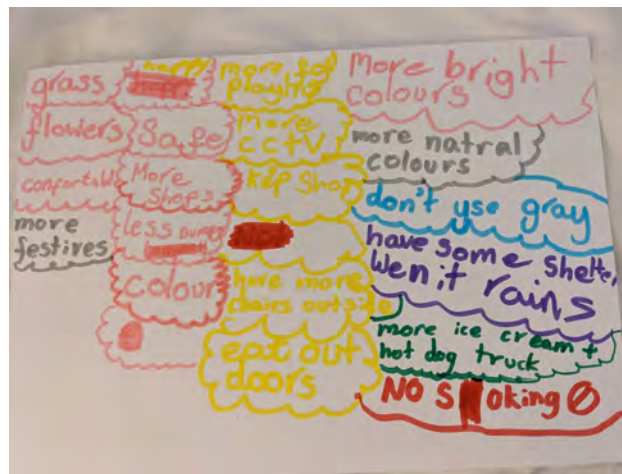 grass
flowers
confortable
more
festives
happy
Safe
More
Shops
less bumpy
colour
more for
playing
more
cctv
kep shop
have more
chairs outside
eat out
doors
More bright
colours
more natral
colours
don't use gray
have some shelter
wen it rains
more ice cream +
hot dog truck
NO s oking